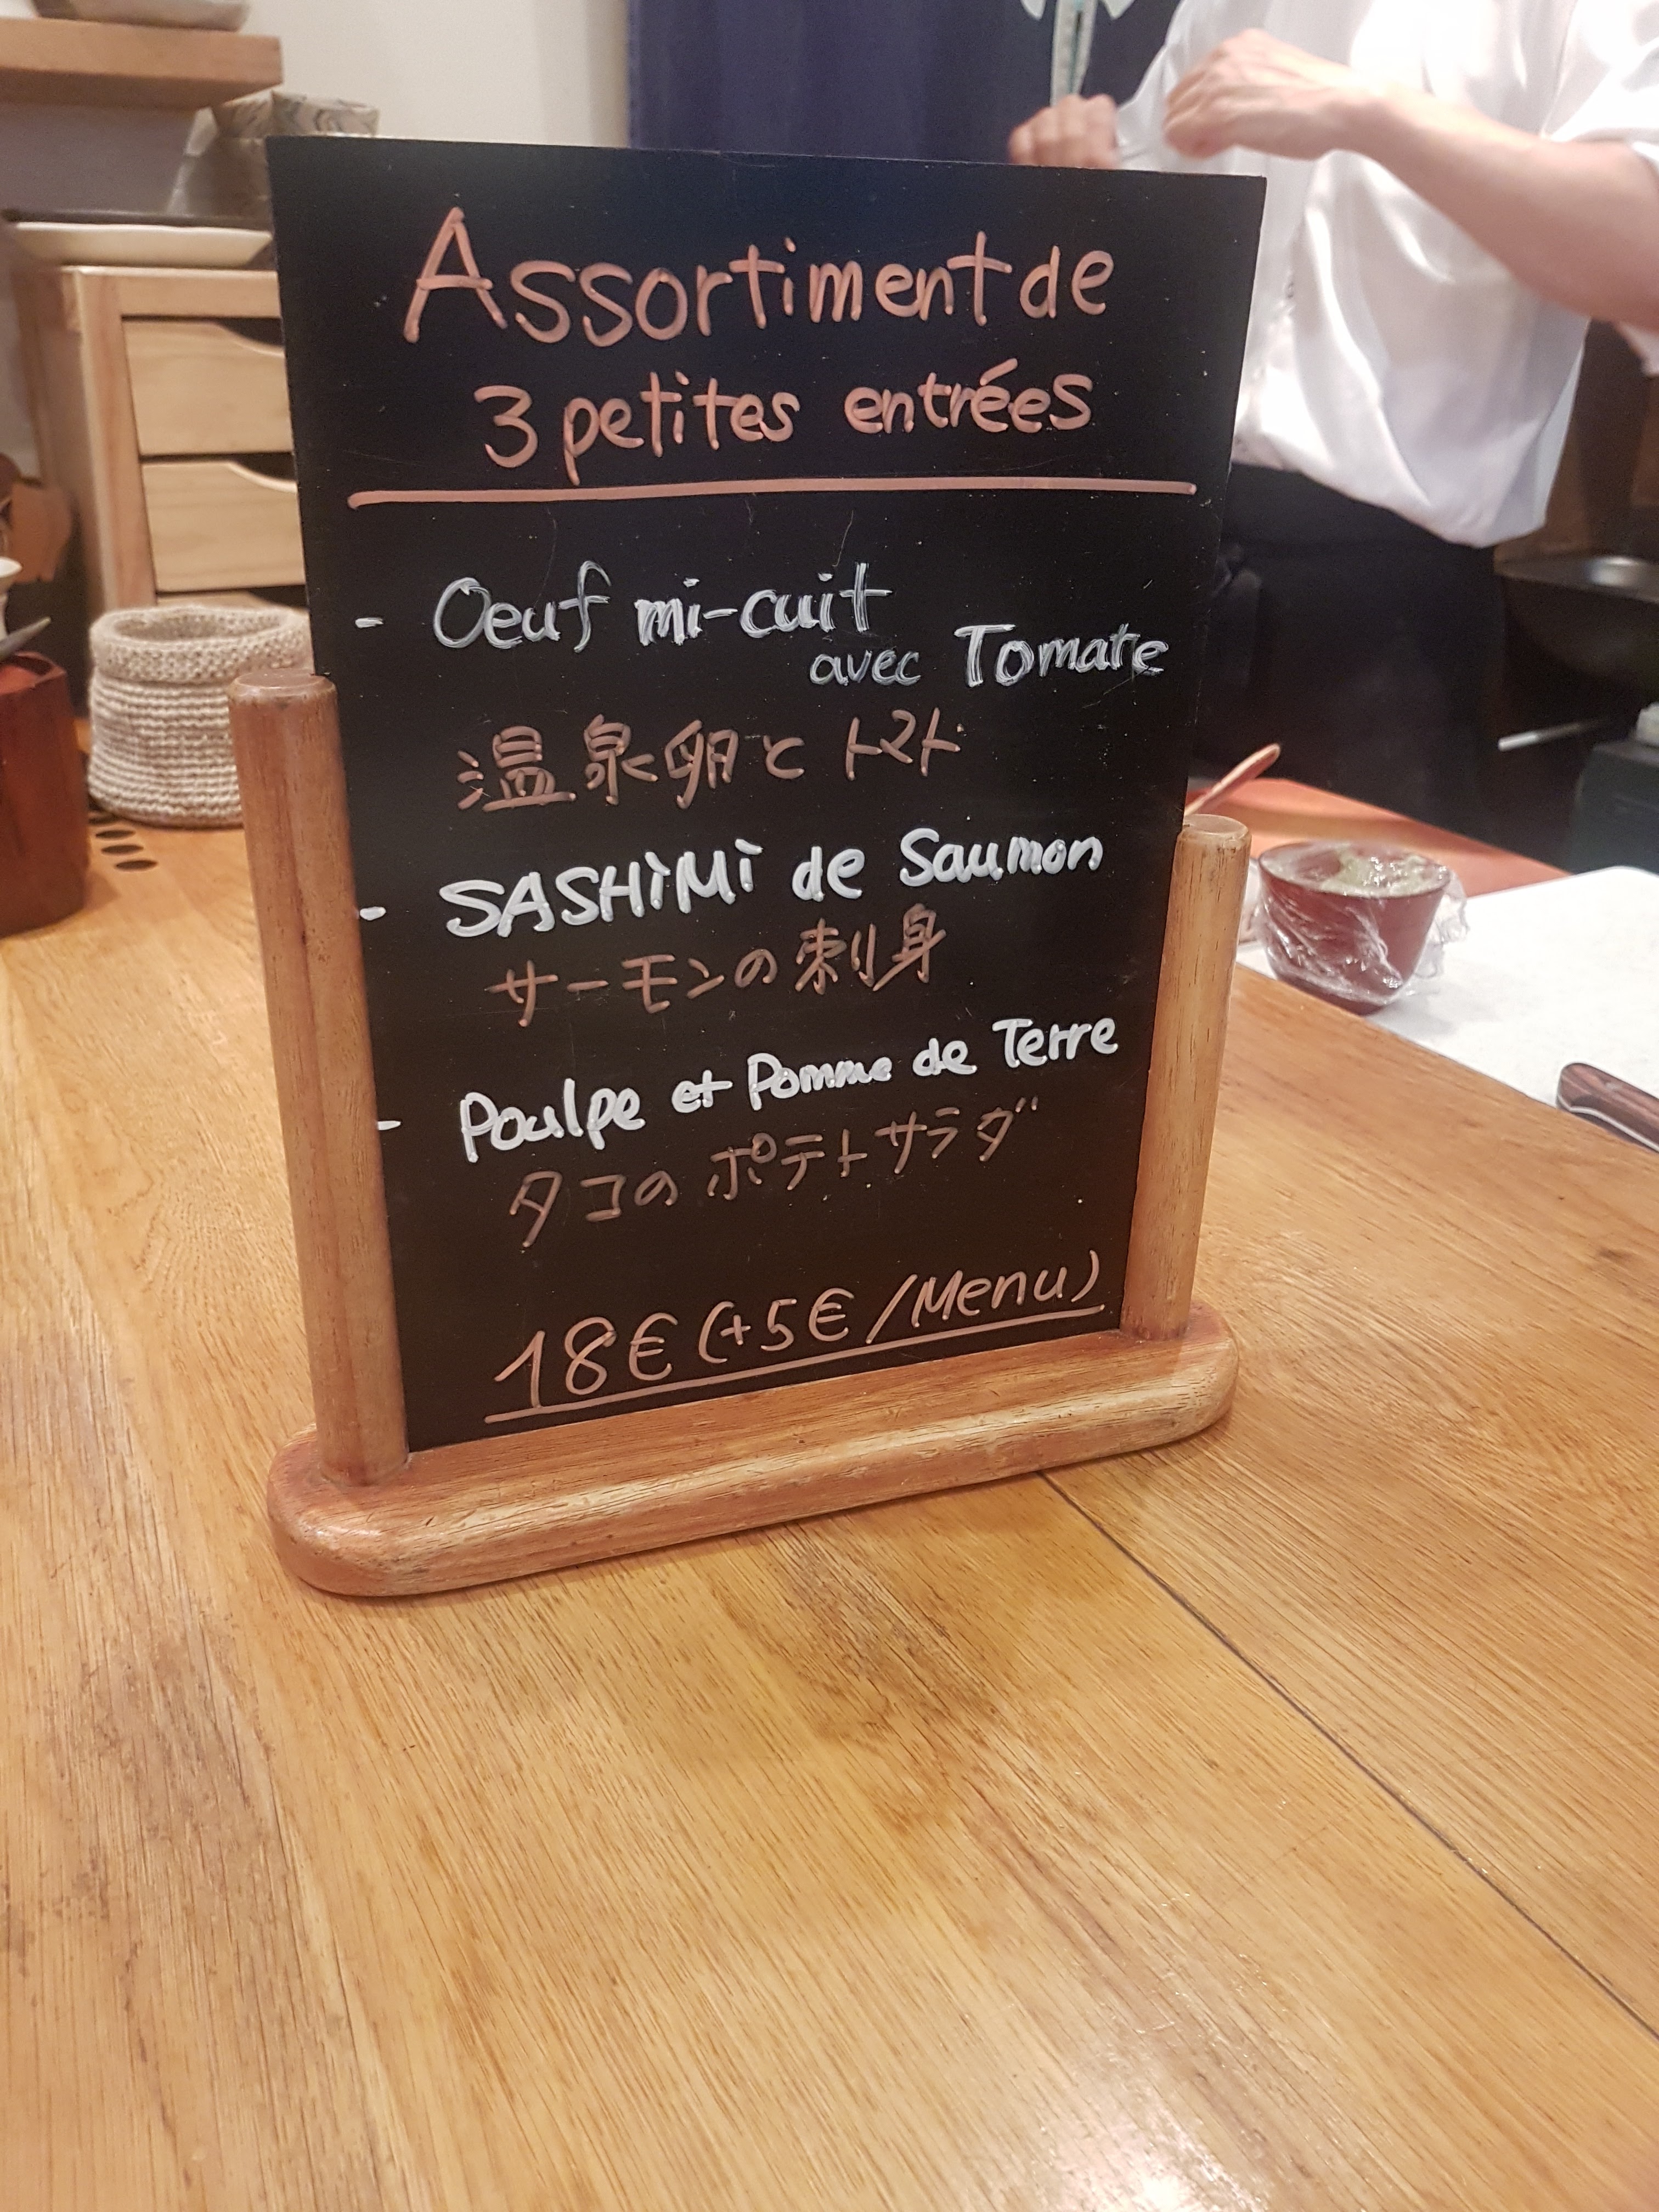 Assortiment de
3 petites entrées
- Oeuf mi-cuit
avec Tomate
温泉卵と トマト
- SASHiMi de Saumon
サーモンの刺身
- Poulpe et Pomme de Terre
タコの ポテトサラダ
18€ (+5€ /Menu)